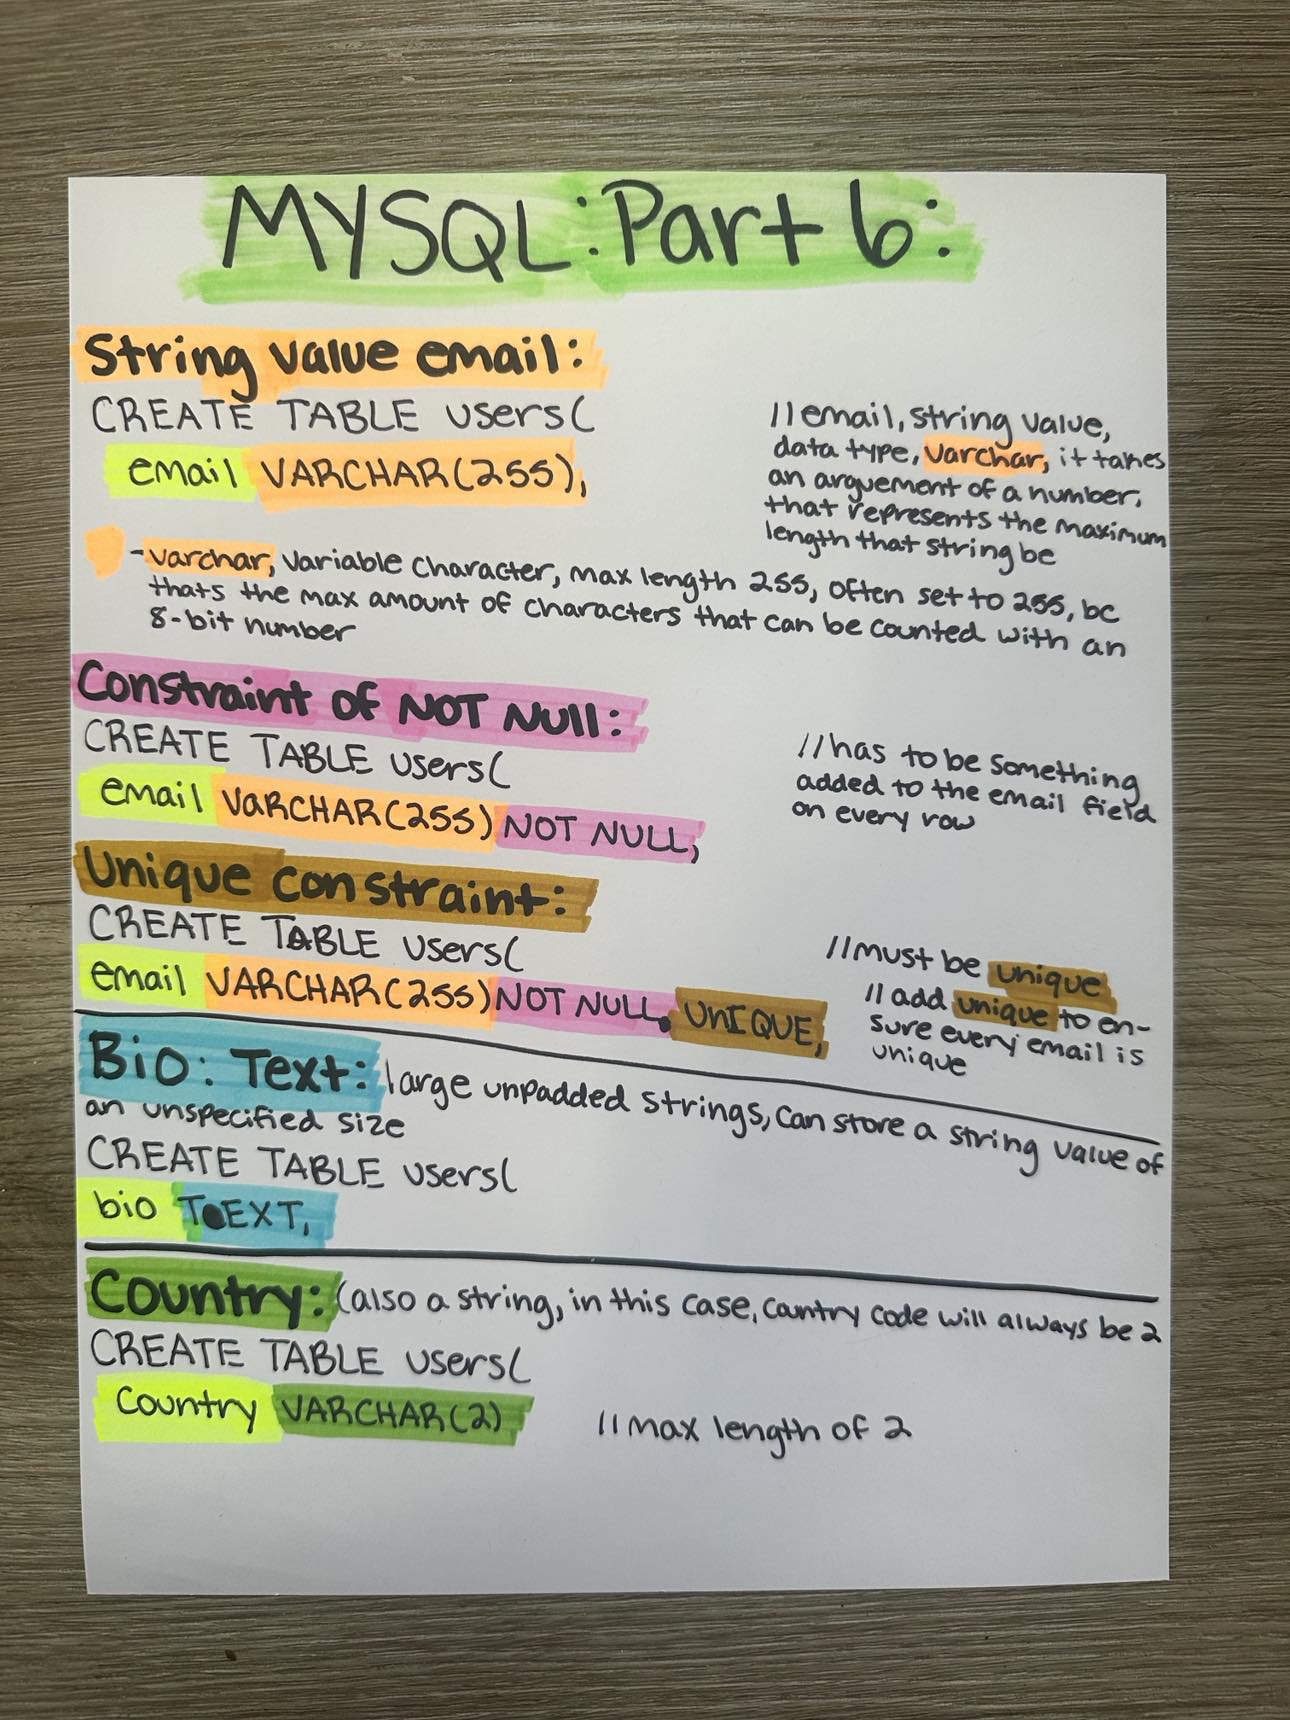 MYSQL: Part 6:
String value email:
CREATE TABLE users(
email VARCHAR(255),
//email, string value,
data type, varchar, it takes
an arguement of a number,
that represents the maximum
length that string be
- varchar, variable character, max length 255, often set to 255, bc
thats the max amount of characters that can be counted with an
8-bit number
Constraint of NOT NUll:
CREATE TABLE users(
email VARCHAR(255) NOT NULL,
//has to be something
added to the email field
on every row
Unique constraint:
CREATE TABLE users(
email VARCHAR(255) NOT NULL UNIQUE,
//must be unique
// add unique to en-
sure every email is
unique
Bio: Text: large unpadded strings, can store a string value of
an unspecified size
CREATE TABLE users(
bio TEXT,
Country: (also a string, in this case, country code will always be 2
CREATE TABLE users(
Country VARCHAR(2)
//max length of 2